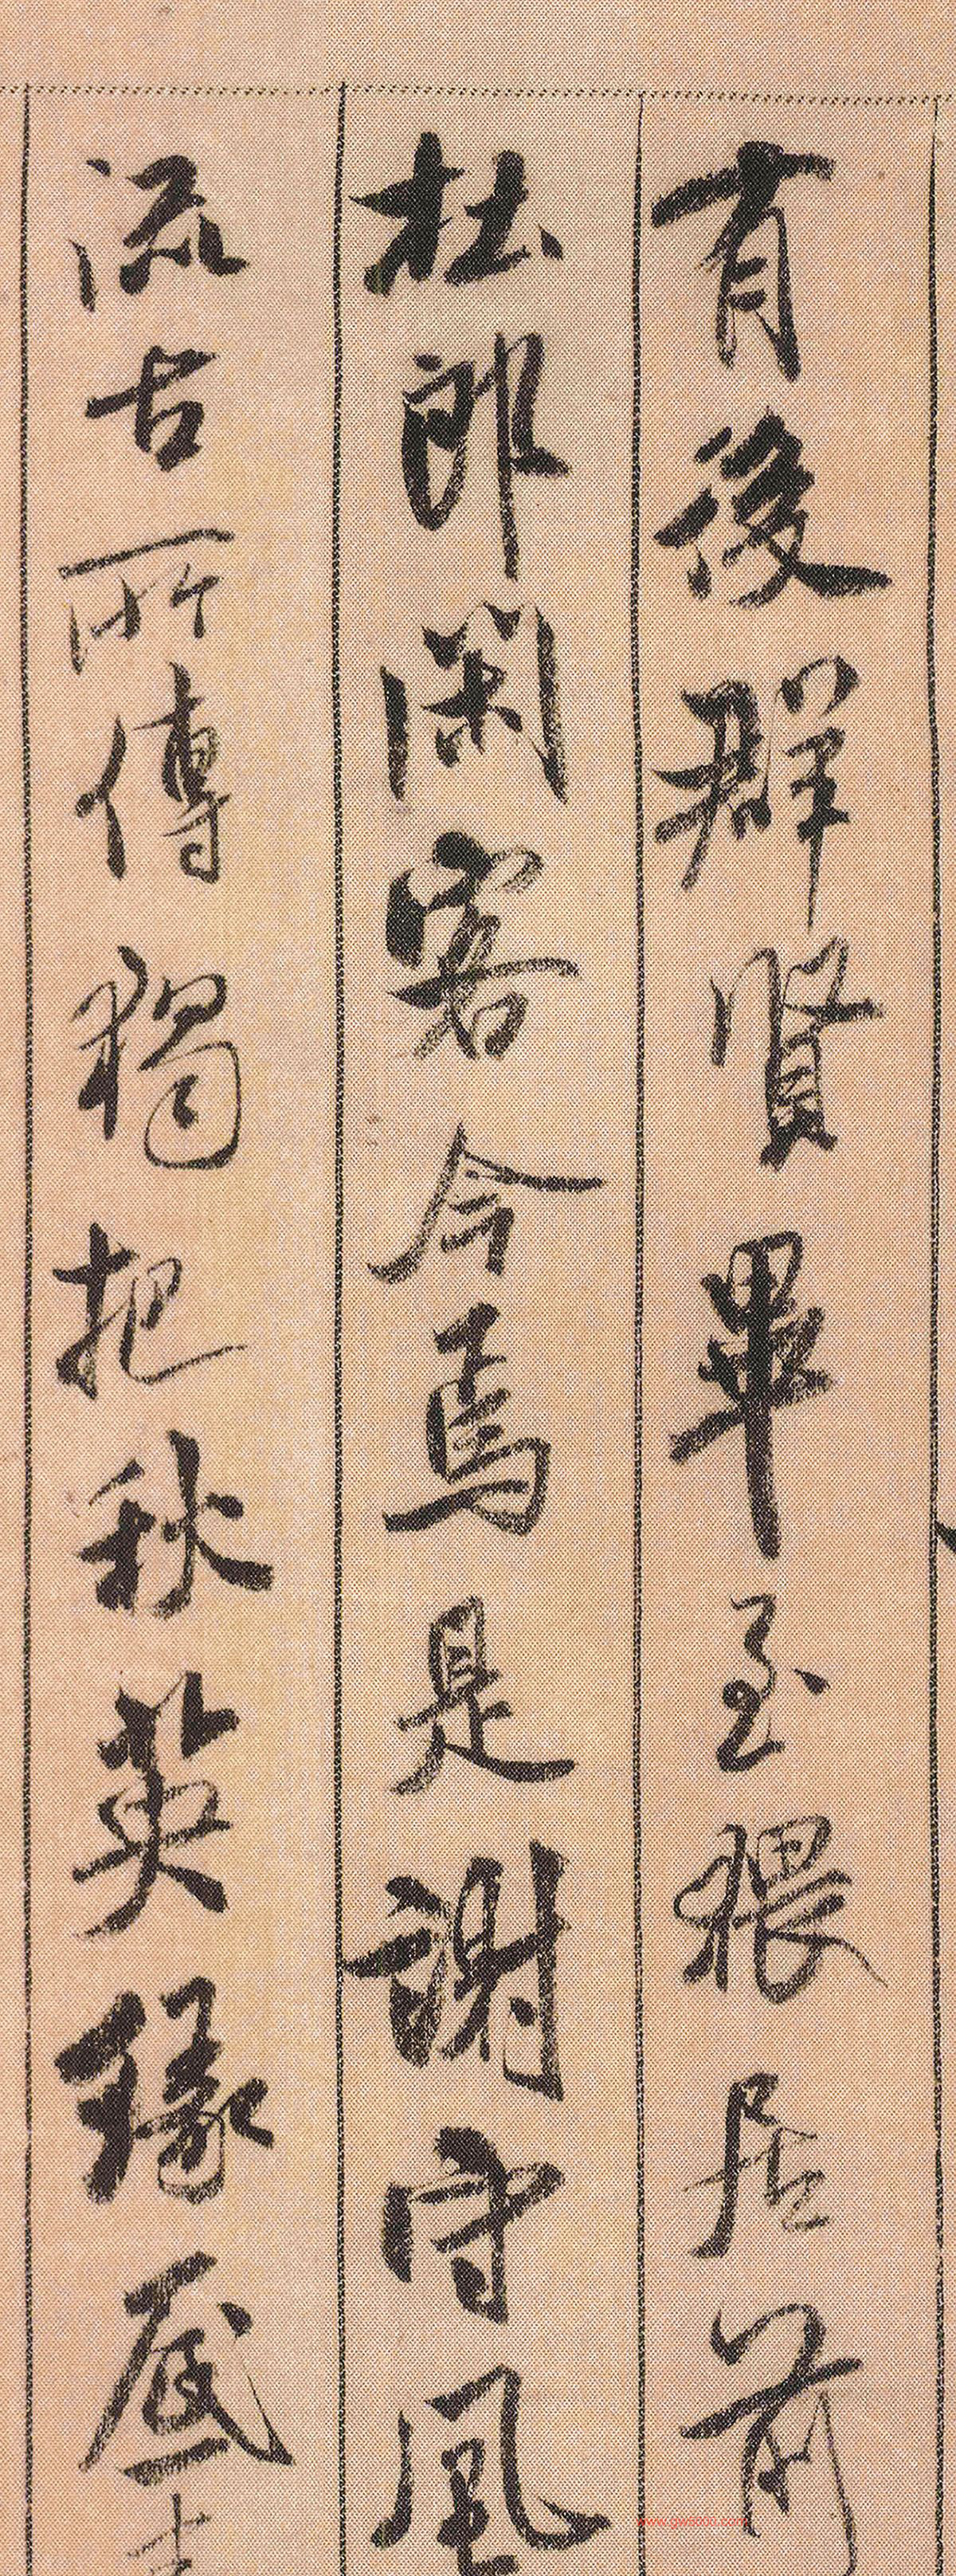 有後群賢畢至猥居前
杜郎閑客今焉是謝守風
流古所傳獨把秋英緣底